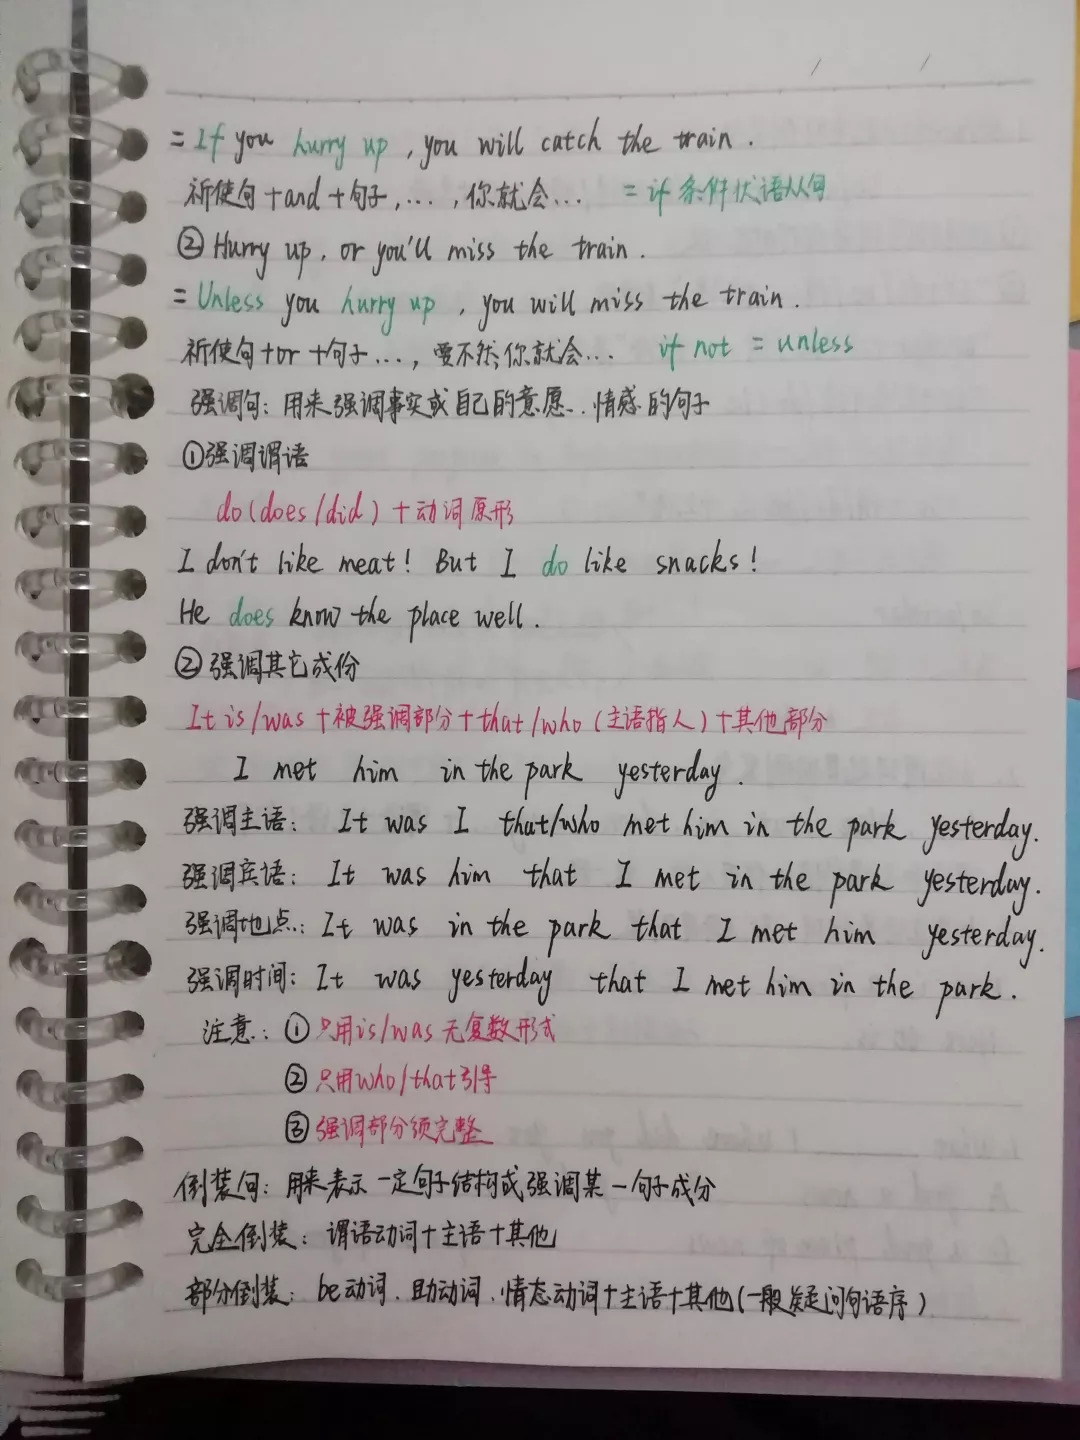 = If you hurry up , you will catch the train .
祈使句+and+句子,...,你就会... =if条件状语从句
② Hurry up, or you'll miss the train .
= Unless you hurry up , you will miss the train .
祈使句+or+句子...,要不然,你就会... if not = unless
强调句:用来强调事实或自己的意愿、情感的句子
①强调谓语
do(does/did)+动词原形
I don't like meat! But I do like snacks!
He does know the place well .
②强调其它成份
It is/was+被强调部分+that/who(主语指人)+其他部分
I met him in the park yesterday .
强调主语: It was I that/who met him in the park yesterday.
强调宾语: It was him that I met in the park yesterday.
强调地点: It was in the park that I met him yesterday.
强调时间: It was yesterday that I met him in the park .
注意:①只用is/was无复数形式
②只用who/that引导
③强调部分须完整
倒装句:用来表示一定句子结构或强调某一句子成分
完全倒装:谓语动词+主语+其他
部分倒装:be动词、助动词、情态动词+主语+其他(一般疑问句语序)